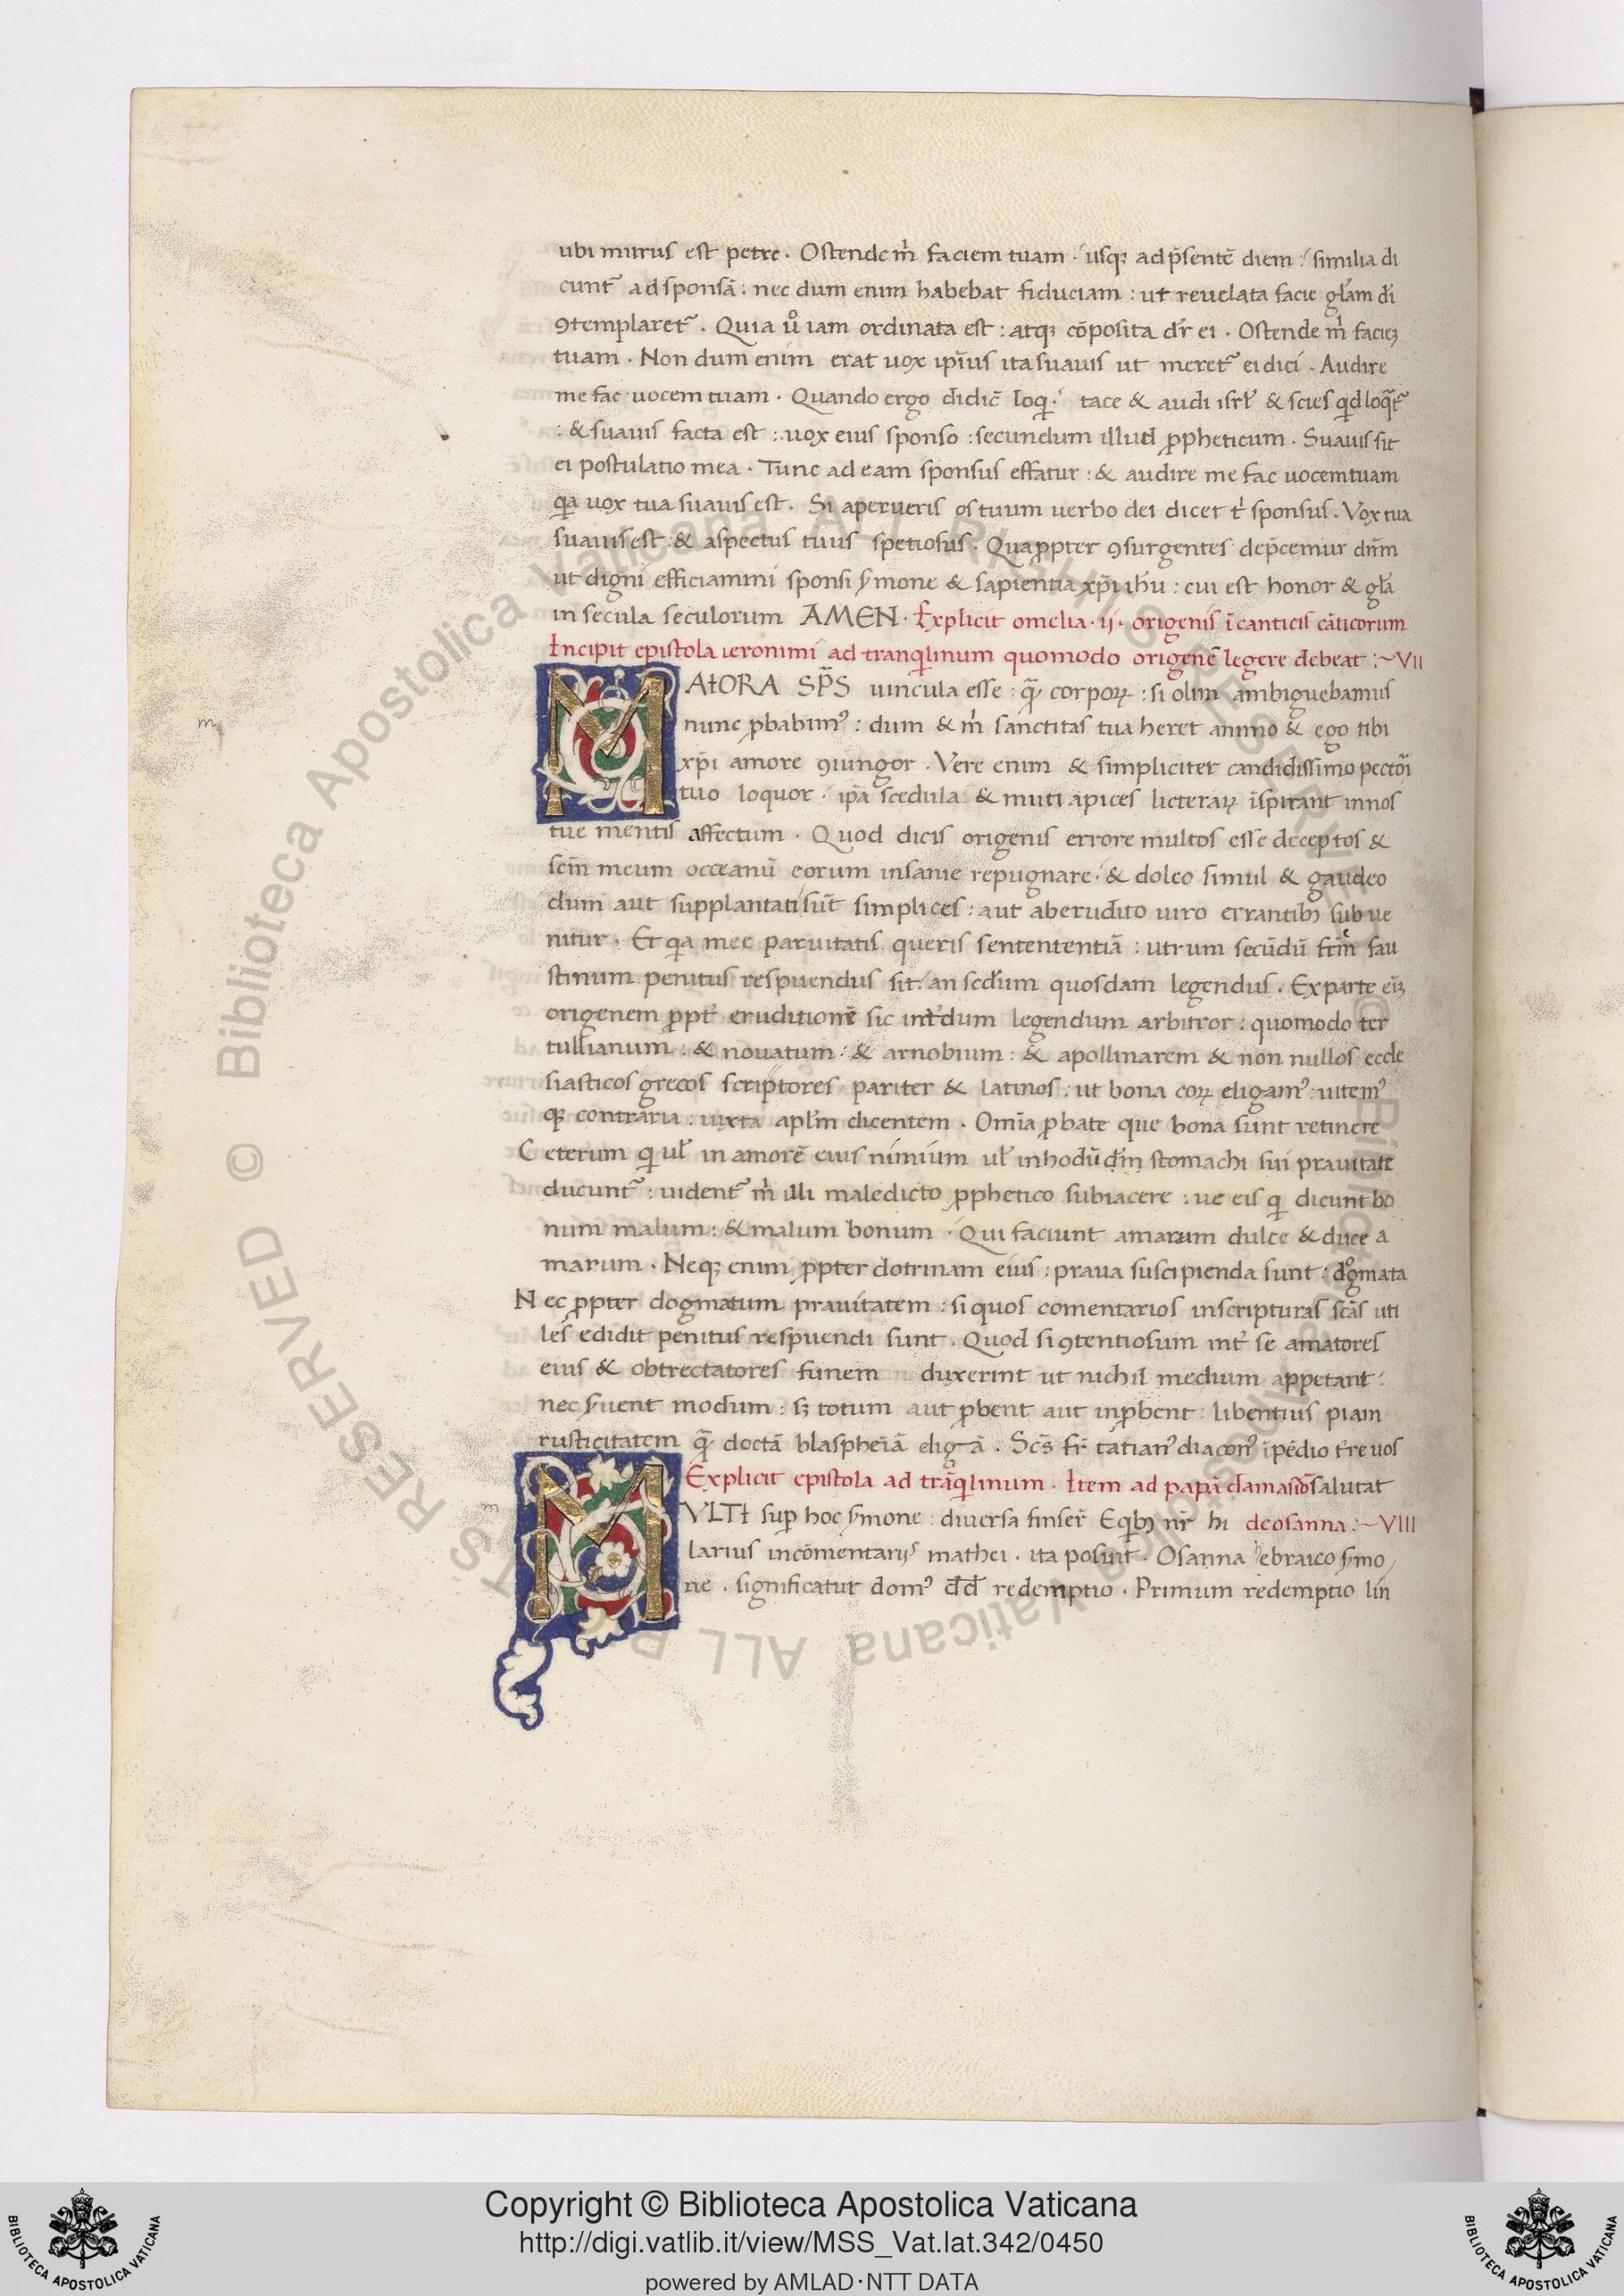 ubi murus est petre. Ostende m̅ faciem tuam. usq; ad p̅sente̅ diem: similia di
cunt᷑ ad sponsa̅: nec dum enim habebat fiduciam: ut reuelata facie gl̅am di̅
ꝯtemplaret᷑. Quia u̅o iam ordinata est: atq; co̅posita dr̅ ei. Ostende m̅ facie;
tuam. Non dum enim erat uox ip̅ius ita suauis ut meret᷑ ei dici. Audire
me fac uocem tuam. Quando ergo didic̅ loqi: tace & audi isrl̅ & scies qid loq̅t᷑
: & suauis facta est: uox eius sponso: secundum illud ꝓpheticum. Suauis sit
ei postulatio mea. Tunc ad eam sponsus effatur: & audire me fac uocem tuam
qa uox tua suauis est. Si aperueris os tuum uerbo dei dicet t̅ sponsus. Vox tua
suauis est & aspectus tuus spetiosus. Quaꝓpter ꝯsurgentes dep̅cemur dn̅m
ut digni efficiamini sponsi s̅mone & sapientia xp̅i ih̅u: cui est honor & gl̅a
in secula seculorum AMEN. Explicit omelia. ii. origenis i̅ canticis ca̅ticorum
Incipit epistola ieronimi ad tranqilinum quomodo origene̅ legere debeat:~VII
MAIORA SP̅S uincula esse: q̅ corpoꝝ: si olim ambiguebamus
nunc ꝓbabim᷒: dum & m̅ sanctitas tua heret animo & ego tibi
xp̅i amore ꝯiungor. Vere enim & simpliciter candidissimo pectori
tuo loquor. ip̅a scedula & muti apices licteraꝝ i̅spirant in nos
tue mentis affectum. Quod dicis origenis errore multos esse deceptos &
scm̅ meum occeanu̅ eorum insanie repugnare. & doleo simul & gaudeo
dum aut supplantati su̅t simplices: aut ab erudito uiro errantib; subue
nitur. Et qa mee paruitatis queris sentententia̅: utrum secu̅du̅ frm̅ fau
stinum penitus respuendus sit. an scdum quosdam legendus. Ex parte ei;
origenem ꝓpt̅ eruditione̅ sic int̅dum legendum arbitror: quomodo ter
tullianum: & nouatum: & arnobium: & apollinarem & non nullos eccle
siasticos grecos scriptores pariter & latinos: ut bona eoꝝ eligam᷒: uitem᷒
q; contraria: iuxta apl̅m dicentem. Omi̅a ꝓbate que bona sunt retinere
Ceterum qi ul̅ in amore̅ eius nimium ul̅ in hodu̅ stomachi sui prauitate
ducunt᷑: uident᷑ m̅ illi maledicto ꝓphetico subiacere: ue eis qi dicunt bo
num malum: & malum bonum. Qui faciunt amarum dulce & duce a
marum. Neq; enim ꝓpter dotrinam eius: praua suscipienda sunt: dogmata
Nec ꝓpter dogmatum prauitatem: si quos comentarios in scripturas sc̅as uti
les edidit penitus respuendi sunt. Quod si ꝯtentiosum int̅ se amatores
eius & obtrectatores funem duxerint ut nichil medium appetant:
nec s̅uent modum: s; totum aut ꝓbent aut inꝓbent: libentius piam
rusticitatem q̅ docta̅ blasphe̅ia̅ elig a̅. Sc̅s fr̅ tatian᷒ diacon᷒ i̅pe̅dio t̅re uos
Explicit epistola ad tra̅qilinum. Item ad papa̅ damasio̅ salutat
MVLTI sup̅ hoc s̅mone: diuersa finser̅ E qib; nr̅ hi de osanna:~VIII
larius in co̅mentarijs mathei. ita posuit. Osanna hebraico s̅mo
ne. significatur dom᷒ dd̅ redemptio. Primum redemptio lin
m
m
Copyright © Biblioteca Apostolica Vaticana
http://digi.vatlib.it/view/MSS_Vat.lat.342/0450
powered by AMLAD·NTT DATA
BIBLIOTECA APOSTOLICA VATICANA
BIBLIOTECA APOSTOLICA VATICANA
© Biblioteca Apostolica Vaticana ALL RIGHTS RESERVED
© Biblioteca Apostolica Vaticana ALL RIGHTS RESERVED